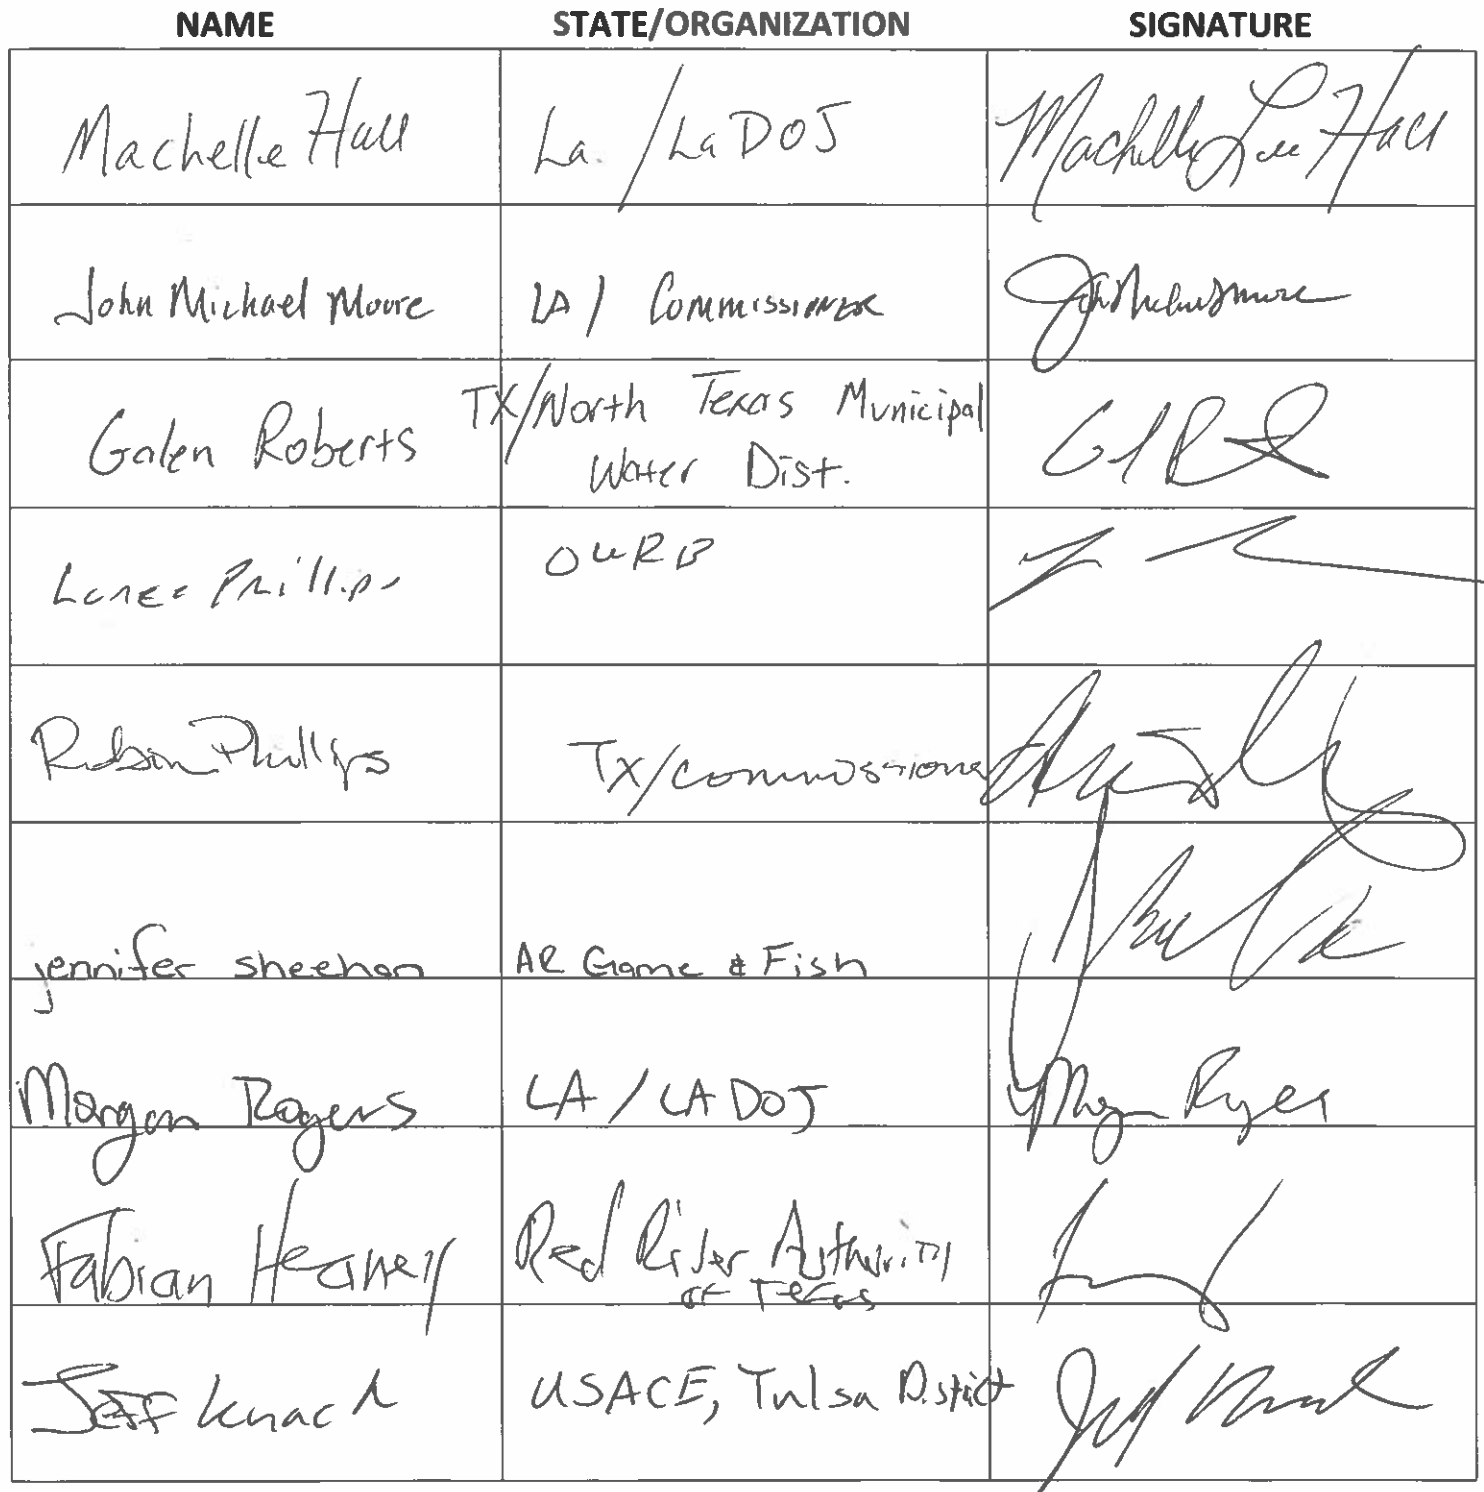 NAME STATE/ORGANIZATION SIGNATURE
Machelle Hall La. / La DOJ Machelle Lee Hall
John Michael Moore LA / Commissioner
Galen Roberts TX/North Texas Municipal
Water Dist.
Phillips OWRB
Robin Phillips TX/commissioner
jennifer sheehan AR Game & Fish
Morgan Rogers LA / LA DOJ Morgan Rogers
Fabian Heaney Red River Authority
of Texas
Jeff Knack USACE, Tulsa District